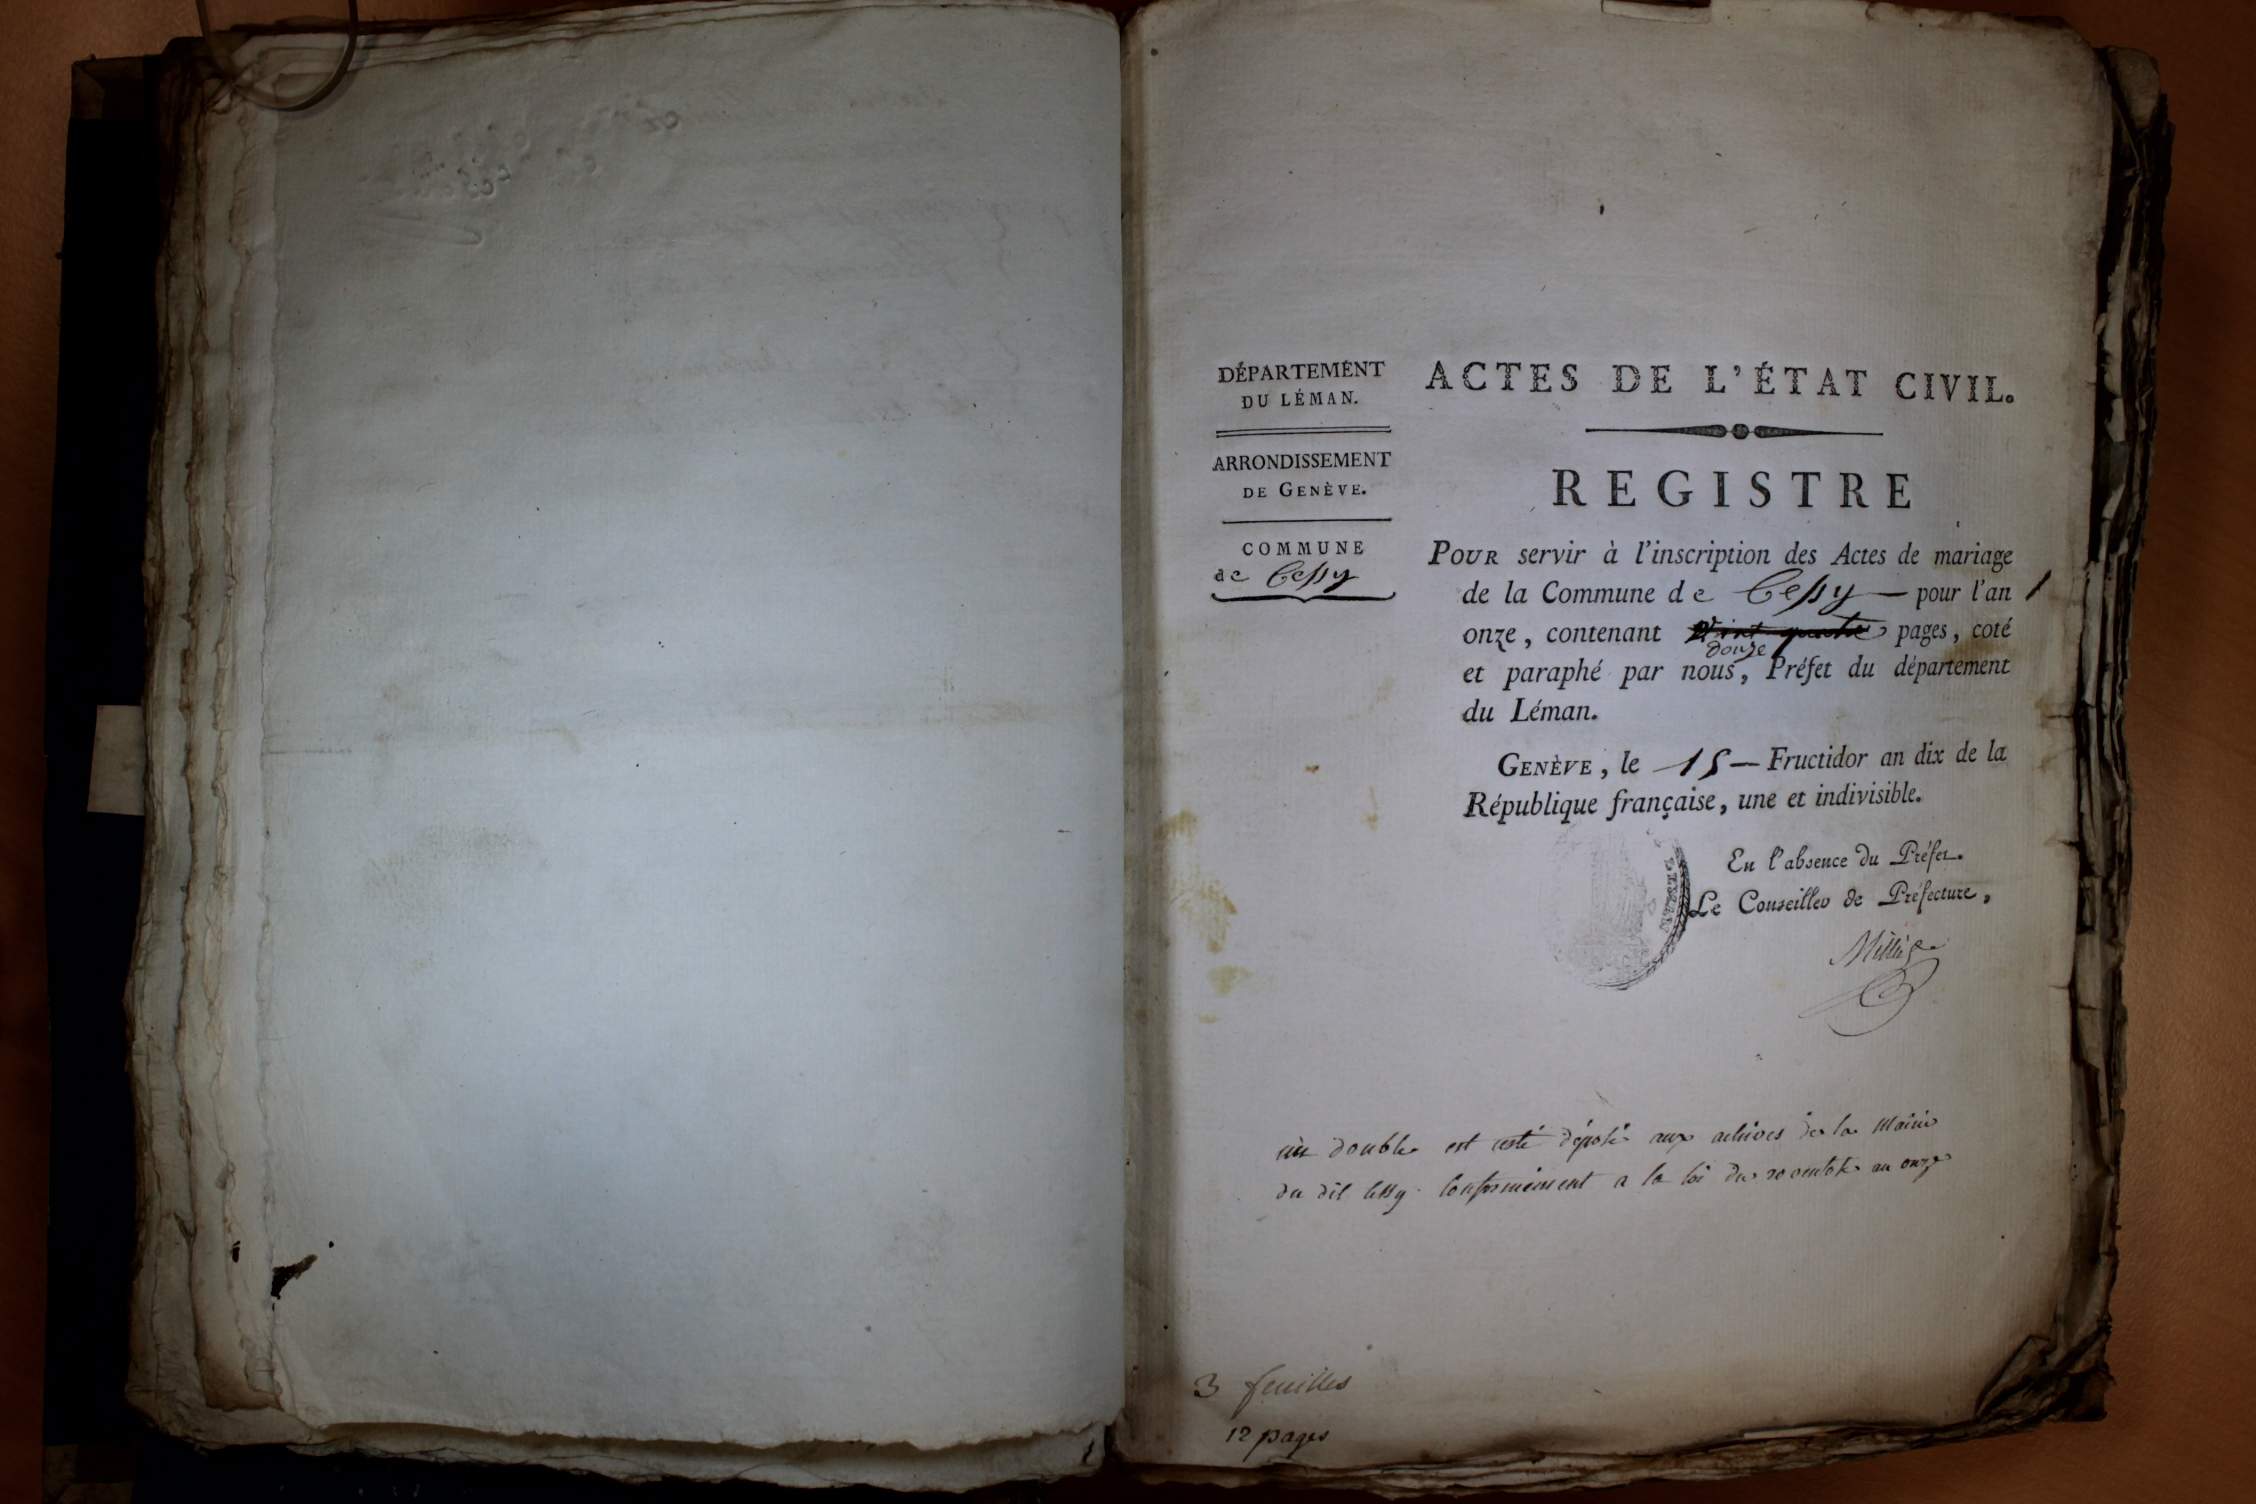 DÉPARTEMENT
DU LÉMAN.
ARRONDISSEMENT
DE GENÈVE.
COMMUNE
de Cessy
ACTES DE L'ÉTAT CIVIL.
REGISTRE
POUR servir à l'inscription des Actes de mariage
de la Commune de Cessy — pour l'an
onze, contenant vint quatre pages, coté
douze
et paraphé par nous, Préfet du département
du Léman.
GENÈVE, le 15 — Fructidor an dix de la
République française, une et indivisible.
LÉMAN
En l'absence du Préfet.
Le Conseiller de Préfecture,
un double est resté déposé aux archives de la Mairie
du dit Cessy conformément a la loi du ventose an onze
3 feuilles
12 pages